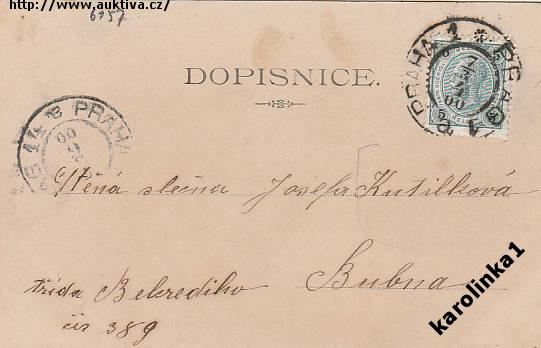 http://www.auktiva.cz/
6157
DOPISNICE.
PRAHA 1 PRAG 1
PRAHA
Ctěná slečna Josefa Kutílková
třída Belcrediho Bubna
čís 389
karolinka1